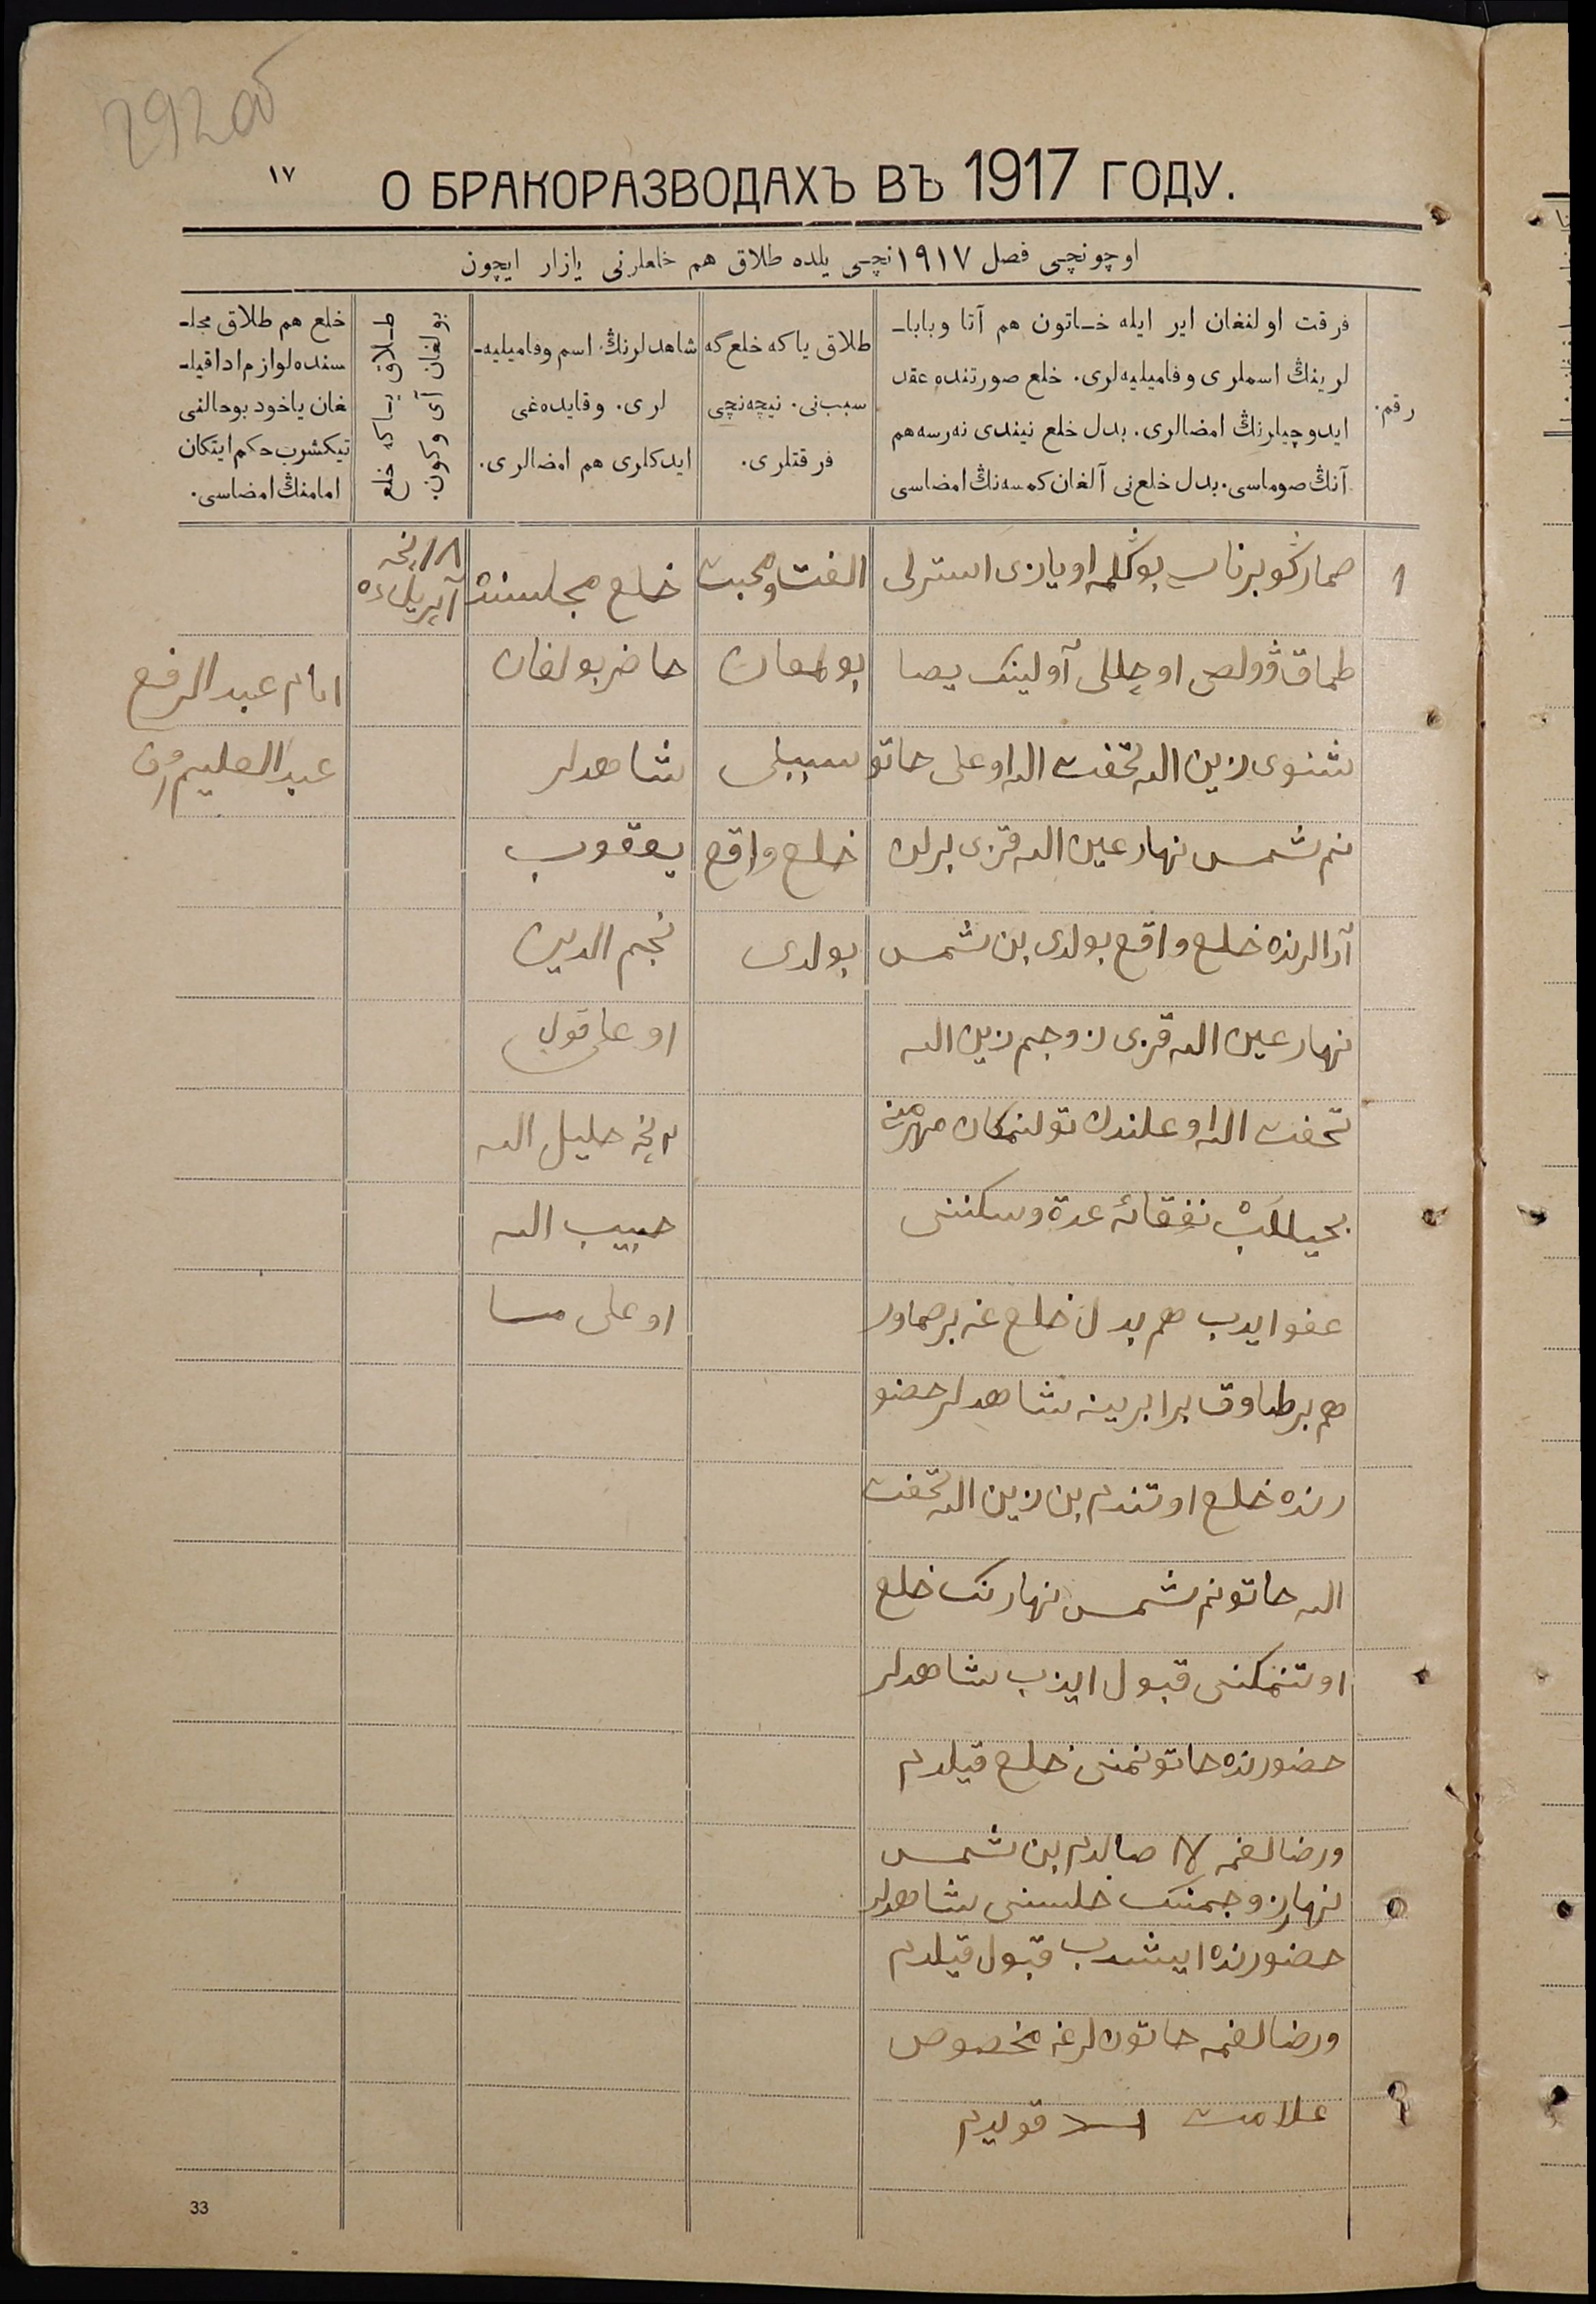 292об
١٧
О БРАКОРАЗВОДАХЪ ВЪ 1917 ГОДУ.
اوچونچی فصل ١٩١٧نچی يلده طلاق هم خلعلرنی يازار ايچون
رقم.
فرقت اولنغان اير ايله خـاتون هم آتا وبابا-
لرينڭ اسملری وفاميليه‌لری. خلع صورتنده عقد
ايدوچيلرنڭ امضالری. بدل خلع نيندی نه‌رسه هم
آنڭ صوماسی. بدل خلع‌نی آلغان كمسه‌نڭ امضاسی
طلاق ياكه خلع‌گه
سبب‌نی. نيچه‌نچی
فرقتلری.
شاهدلرنڭ اسم وفاميليه-
لری. وقايده‌غی
ايدكلری هم امضالری.
طـلاق يـاكه خلع
بولغان آی وكون.
خلع هم طلاق مجلـ-
سنده لوازم اداقيلـ-
غان ياخود بوحالنی
تيكشرب حكم ايتكان
امامنڭ امضاسی.
١
صمار گوبرناسی بوگلمه اويازی استرلی
طماق وولصی اوچللی آولينك يصا
شنوی زين الله تحفت الله اوغلی خاتو
نم شمس نهار عين الله قزی برلن
آرالرنده خلع واقع بولدی بن شمس
نهار عين الله قزی زوجم زين الله
تحفت الله اوغلندن تولنمكان مهرمنه
نفقائه عدة وسكننی
عفو ايدب هم بدل خلع غه بر صماور
هم بر طاوق برابرينه شاهدلر حضو
رنده خلع اوتندم بن زين الله تحفت
الله خاتونم شمس نهارنك خلع
اوتنمكنی قبول ايدب شاهدلر
حضورنده خاتونمنی خلع قيلدم
ورضالغمه صالدم بن شمس
نهار زوجمنك خلسنی شاهدلر
حضورنده ايشدب قبول قيلدم
ورضالغمه خاتونلرغه مخصوص
علامت قويدم
الفت ومحبت
بولمغان
سببلی
خلع واقع
بولدی
خلع مجلسنده
حاضر بولغان
شاهدلر
يعقوب
نجم الدين
اوغلی قول
٢نچه خليل الله
حبيب الله
اوغلی
١٨نچه
آپريلده
امام عبد الرفيع
عبد العليم
33